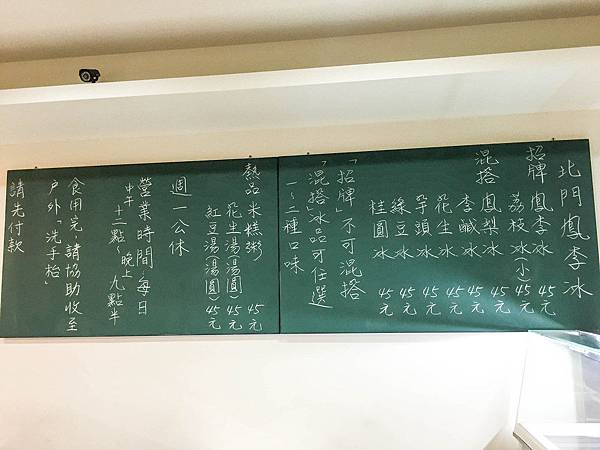 北門鳳李冰
招牌 鳳李冰 45元
荔枝冰(小) 45元
混搭 鳳梨冰 45元
李鹹冰 45元
花生冰 45元
芋頭冰 45元
綠豆冰 45元
桂圓冰 45元
「招牌」不可混搭
「混搭冰品可任選
一~二種口味
熱品 米糕粥 45元
花生湯(湯圓) 45元
紅豆湯(湯圓) 45元
週一公休
營業時間~每日
中午十二點~晚上九點半
食用完,請協助收至
戶外「洗手枱」
請先付款